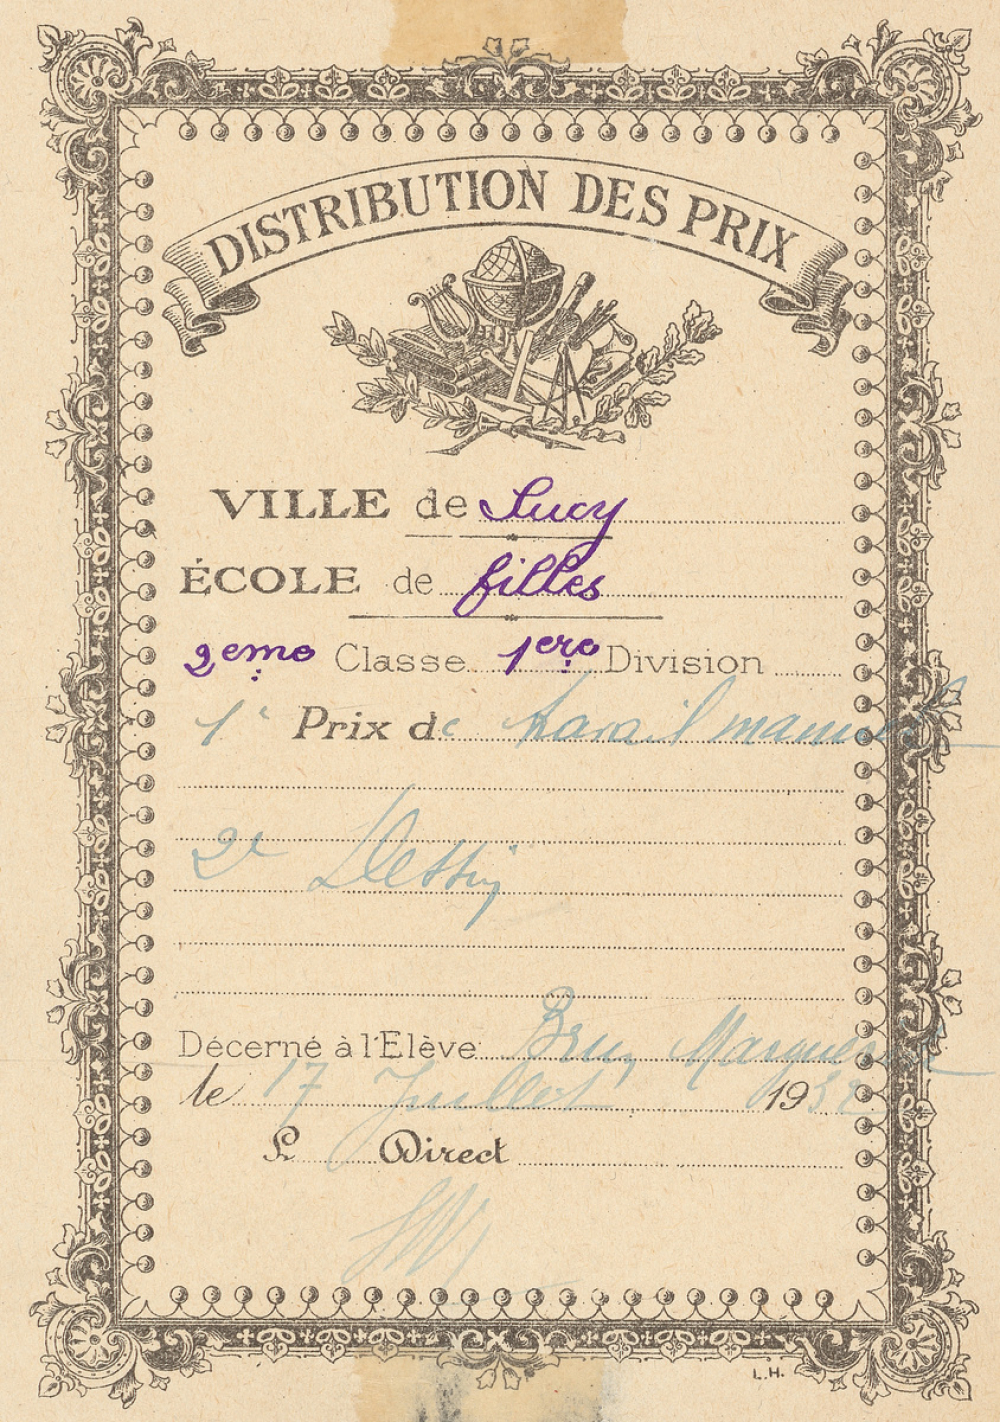 DISTRIBUTION DES PRIX
VILLE de Sucy
ÉCOLE de filles
2eme Classe 1ere Division
1e Prix de travail manuel
2e Dessin
Décerné à l'Elève Brun Marguerite
le 17 Juillet 1932
L Direct
L.H.